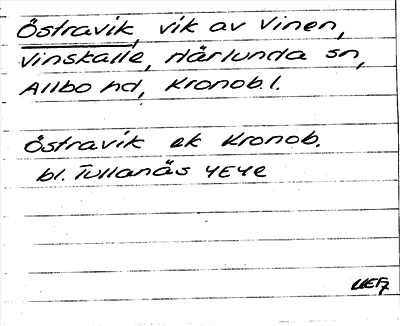 Östravik, vik av Vinen,
Vinskaile, Härlunda sn,
Allbo hd, Kronob.l.
Östravik ek Kronob.
bl. Tullanäs 4E4e